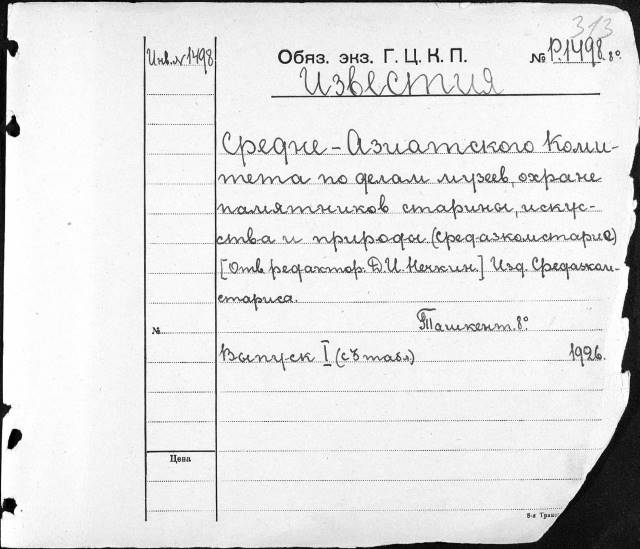 313
Инв. N 1498
Обяз. экз. Г. Ц. К. П.
№ Р.1498 8°.
Известия
Средне-Азиатского Коми-
тета по делам музеев, охране
памятников старины, искус-
ства и природы. (Средазкомстарис)
[Отв. редактор. Д.И. Нечкин.] Изд. Средазком-
стариса.
Ташкент. 8°.
№
Выпуск I (съ табл.)
1926.
Цена
8-я Транс